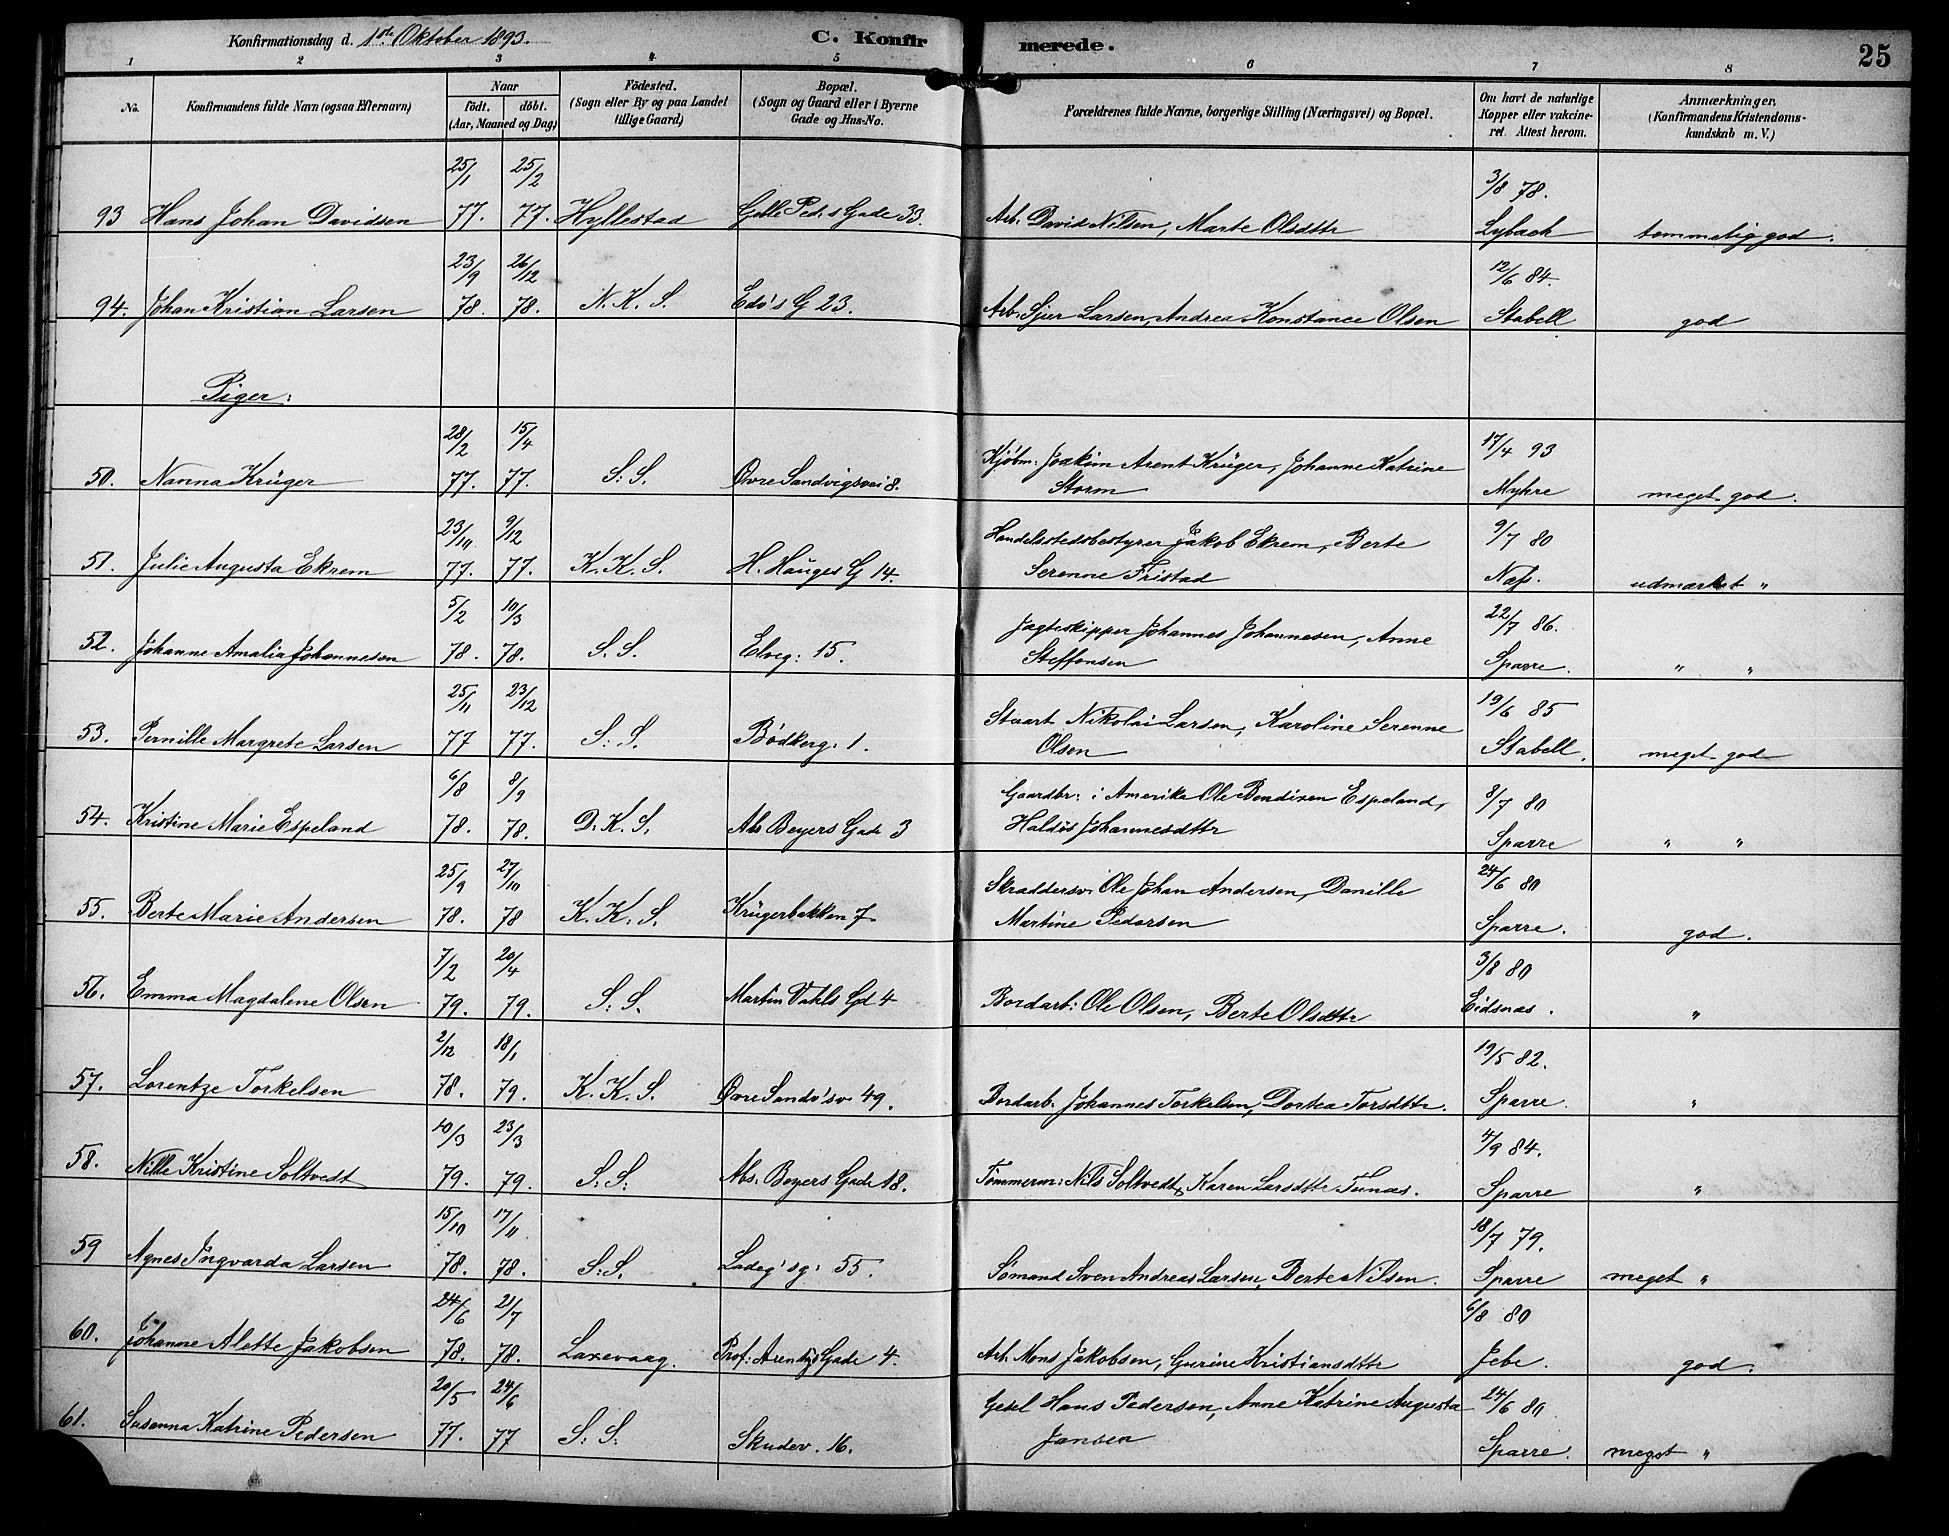 Konfirmationsdag d. 1ste Oktober 1893. C. Konfirmerede. 25
1 2 3 4 5 6 7 8
No. Konfirmandens fulde Navn (ogsaa Efternavn) Naar födt. döbt. (Aar, Maaned og Dag) Födested. (Sogn eller By og paa Landet tillige Gaard) Bopæl. (Sogn og Gaard eller i Byerne Gade og Hus-No. Forældrenes fulde Navne, borgerlige Stilling (Næringsvei) og Bopæl. Om havt de naturlige Kopper eller vakcineret. Attest herom. Anmærkninger. (Konfirmandens Kristendomskundskab m. V.)
25/1 25/2 3/8 78.
93 Hans Johan Davidsen 77. 77. Hyllestad Gelle Ped.s Gade 33. Arb. David Nilsen, Marte Olsdttr Lybach temmelig god.
23/9 26/12 12/6 84.
94. Johan Kristian Larsen 78. 78. N. K. S. Edv's G 23. Arb. Sjur Larsen, Andrea Konstance Olsen Stabell god
Piger:
28/2 15/4 Kjøbm: Joakim Arent Krüger, Johanne Katrine 17/4 93
50. Nanna Krüger 77. 77. S. S. Øvre Sandvigsvei 8. Storm Myhre meget god.
23/10 9/12 Handelsstedsbestyrer Jakob Ekrem, Berte 9/7 80
51. Julie Augusta Ekrem 77. 77. K. K. S. H. Hauges G 14. Serenne Fristad Næss. udmærket "
5/2 10/3 Jagteskipper Johannes Johannesen, Anne 22/7 86.
52. Johanne Amalia Johannesen 78. 78. S. S. Elveg: 15. Steffensen Sparre. " "
25/11 23/12 Stuart Nikolai Larsen, Karoline Serenne 19/6 85
53. Pernille Margrete Larsen 77 77. S: S. Bødkerg: 1. Olsen Stabell. meget god
6/8 8/9 Gaardbr: i Amerika Ole Bendixen Espeland, 8/7 80
54. Kristine Marie Espeland 78. 78. D. K. S. Abs Beyers Gade 3 Haldis Johannesdttr Sparre " "
25/9 27/10 Skraddersv. Ole Johan Andersen, Danille 24/6 80
55. Berte Marie Andersen 78. 78 K. K. S. Krügerbakken 7 Martine Pedersen Sparre. god.
7/2 20/4 3/8 80
56. Emma Magdalene Olsen 79. 79. S: S. Martin Vahls Gd 4 Bordarb: Ole Olsen, Berte Olsdttr Eidsnæs. "
2/12 18/1 19/5 82.
57. Lorentze Torkelsen 78. 79. K. K. S. Øvre Sandv'sv 49. Bordarb. Johannes Torkelsen, Dortea Torsdttr. Sparre. "
10/3 23/3 4/9 84.
58. Nille Kristine Soltvedt 79. 79. S: S: Abs. Beyers Gade 18. Tømmerm: Nils Soltvedt, Karen Larsdttr Tunæs. Sparre "
15/10 17/11 18/7 79.
59 Agnes Ingvarda Larsen 78. 78. S: S. Ladeg'sg: 55. Sømand Sven Andreas Larsen, Berte Nilsen. Sparre meget "
24/6 21/7 6/8 80
60. Johanne Alette Jakobsen 78. 78. Laxevaag. Prof: Arentz Gade 4. Arb. Mons Jakobsen, Gurine Kristiansdttr Jebe. god.
20/5 24/6 Gesel Hans Pedersen, Anne Katrine Augusta 24/6 80
61. Susanna Katrine Pedersen 77. 77 S: S: Skudev. 16. Jansen Sparre. meget "